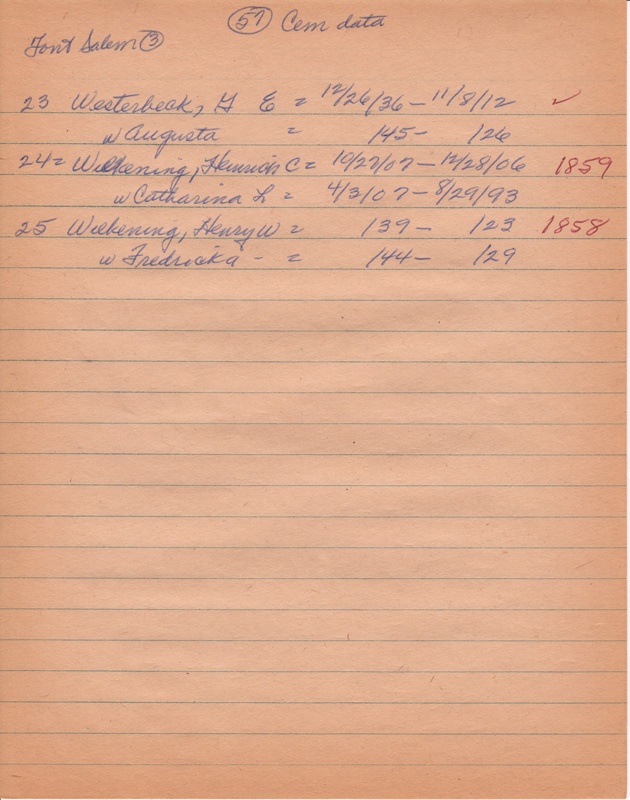 (57) Cem data
Font Salem (3)
23 Westerbeck, G E = 12/26/36 – 11/8/12 ✓
w Augusta = /45 – /26
24 = Wilkening, Heinrich C = 10/27/07 – 12/28/06 1859
w Catharina L = 4/3/07 – 8/29/93
25 Wilkening, Henry W = /39 – /23 1858
w Fredricka - = /44 – /29